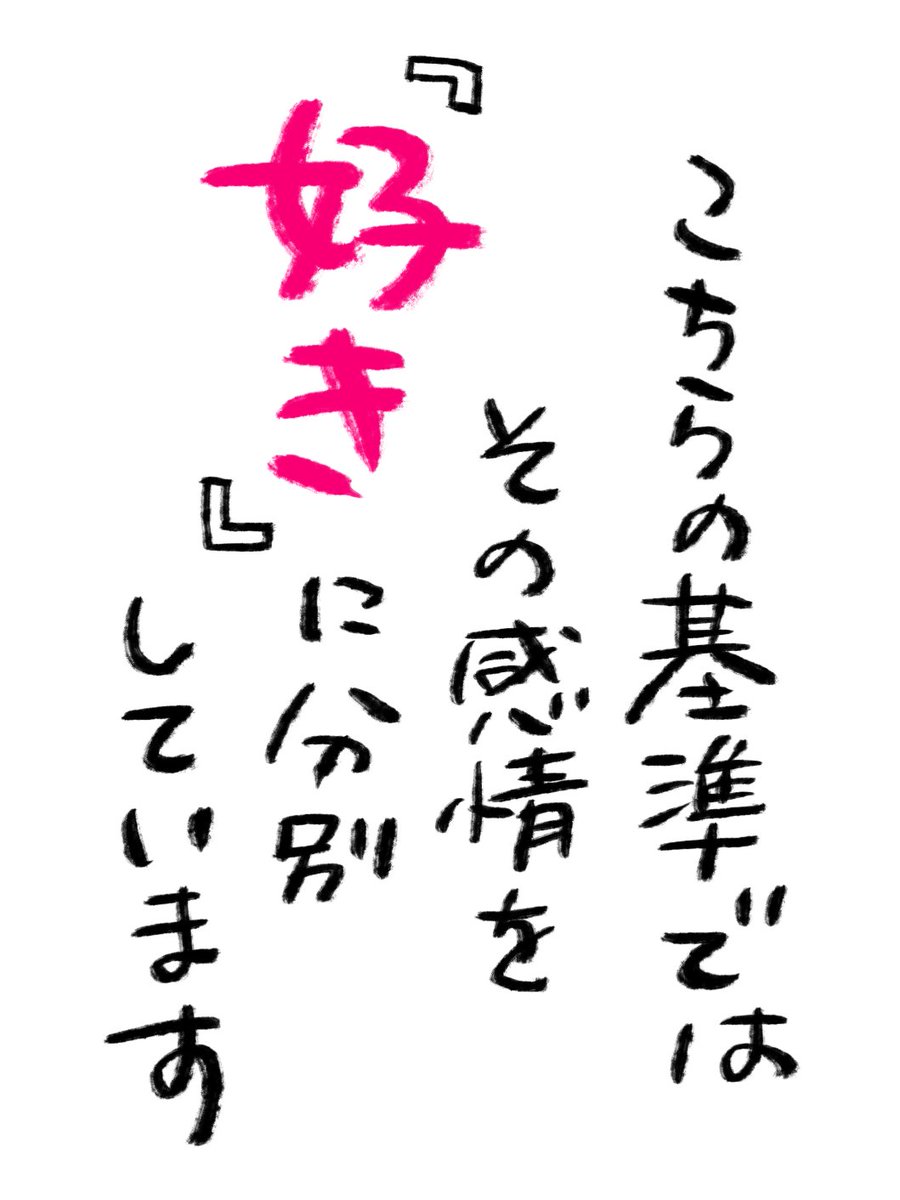 こちらの基準では
その感情を
『好き』に分別
しています